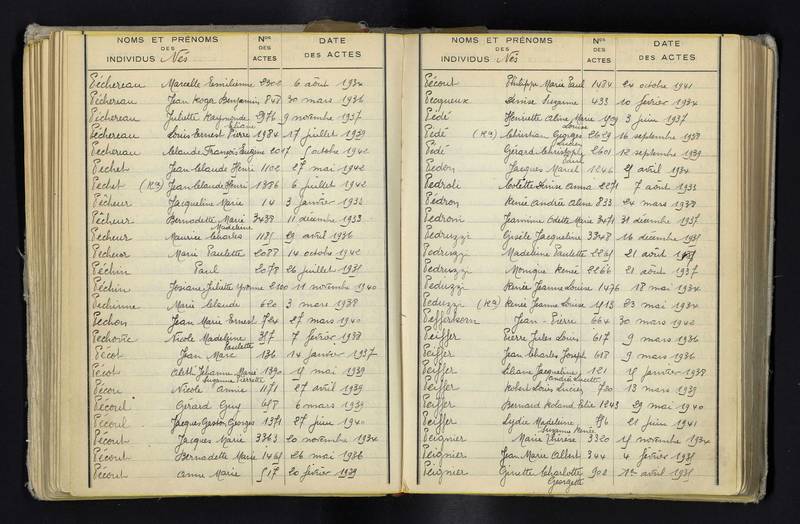 NOMS ET PRÉNOMS
DES
INDIVIDUS Nés
Nos
DES
ACTES
DATE
DES ACTES
Péchereau Marcelle Emilienne 2302 6 août 1934
Péchereau Jean Roger Benjamin 848 30 mars 1936
Péchereau Juliette Raymonde 2976 9 novembre 1937
Eliane
Péchereau Louis Ernest Pierre 1984 17 juillet 1939
Péchereau Claude François Eugène 2017 octobre 1942
Pechet Jean Claude Henri 1102 27 mai 1942
Pechet (Rd) Jean Claude Henri 1386 6 juillet 1942
Pêcheur Jacqueline Marie 14 3 janvier 1936
Pêcheur Bernadette Marie 3438 11 décembre 1933
Madeleine
Pecheur Maurice Charles 29 avril 1936
Pecheur Marie Paulette 2088 14 octobre 1942
Péchin Paul 2078 26 juillet
Péchin Josiane Juliette Yvonne 2100 11 novembre 1940
Pechinne Marie Claude 620 3 mars 1938
Pechon Jean Marie Ernest 724 27 mars 1940
Pechovic Nicole Madeleine 7 février 1938
Paulette
Pécot Jean Marc 136 14 janvier 1937
Pécot Jehanne Marie 1390 mai 1939
Suzanne Pierrette
Pécou Nicole Annie 1171 27 avril 1939
Pécoul Gérard Guy 6 mars 1939
Pécoul Jacques Gaston Georges 1371 27 juin 1940
Pécout Jacques Marie 3363 20 novembre 1934
Pécout Bernadette Marie 26 mai 1936
Pécout Anne Marie 517 20 février 1939
NOMS ET PRÉNOMS
DES
INDIVIDUS Nés
Nos
DES
ACTES
DATE
DES ACTES
Pécout Philippe Marie Paul 1484 24 octobre 1941
Pecqueux Denise Suzanne 433 10 février 1934
Pédé Henriette Aline Marie 3 juin 1937
Louise
Pédé (Rd) Christian Georges 2629 16 septembre 1938
Lucien
Pédé Gérard Christophe 2601 12 septembre 1939
Pedon Jacques Marcel 1246 avril 1934
Pedroli Colette Denise Anna 2271 7 août
Pédron Renée Andrée Aline 833 24 mars 1938
Pedroni Jeannine Odette Marie 3471 31 décembre 1937
Pedruzzi Gisèle Jacqueline 3348 16 décembre
Pedruzzi Madeleine Paulette 21 août
Pedruzzi Monique Renée 2266 21 août 1937
Peduzzi Renée Jeanne Louise 1476 18 mai 1934
Peduzzi (Rd) Renée Jeanne Louise 23 mai 1934
Jean-Pierre 664 30 mars 1942
Peiffer Pierre Jules Louis 617 9 mars 1936
Peiffer Jean Charles Joseph 618 9 mars 1936
Peiffer Liliane Jacqueline 121 janvier 1938
Andrée Lucette
Peiffer Robert Louis Lucien 720 13 mars 1939
Peiffer Bernard Roland 1243 29 mai 1940
Peiffer Lydie Madeleine 21 juin 1941
Suzanne Renée
Peignier Marie Thérèse 3320 novembre 1934
Peignier Jean Marie Albert 344 4 février
Peignier Ginette Charlotte 902 1er avril
Georgette